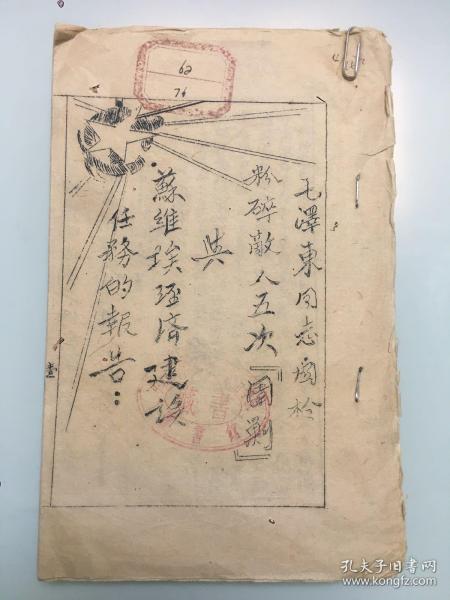 毛澤東同志關於
粉碎敵人五次『圍剿』
與
蘇維埃經濟建設
任務的報告：
62
76
藏書
孔夫子旧书网
www.kongfz.com